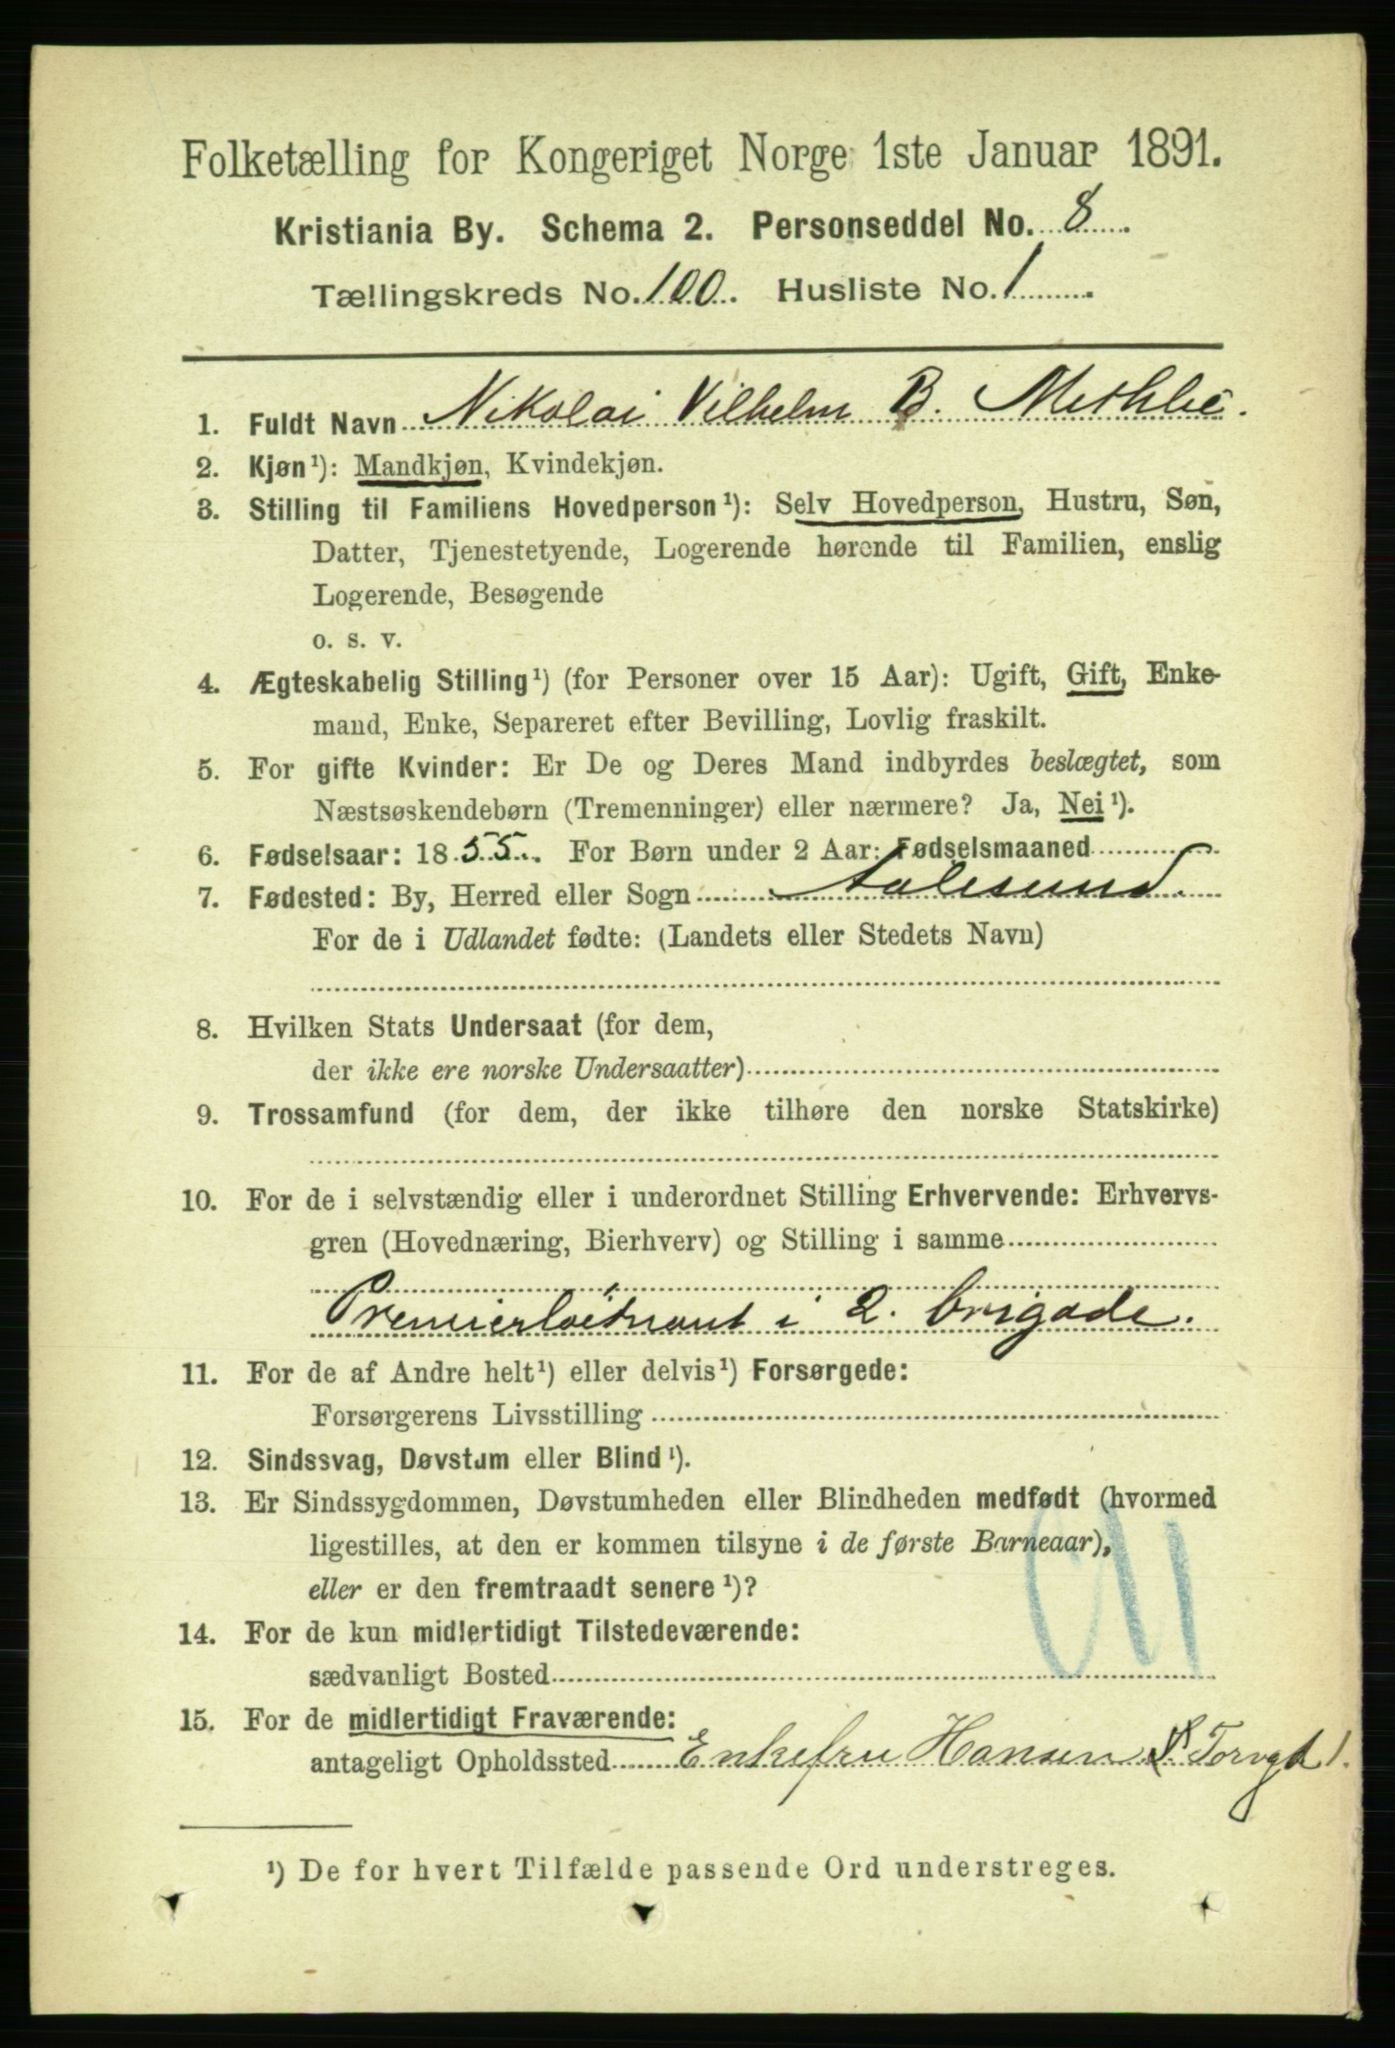 Folketælling for Kongeriget Norge 1ste Januar 1891.
Kristiania By. Schema 2. Personseddel No. 8
Tællingskreds No. 100. Husliste No. 1
1. Fuldt Navn Nikolai Vilhelm B. Methlie.
2. Kjøn¹): Mandkjøn, Kvindekjøn.
3. Stilling til Familiens Hovedperson¹): Selv Hovedperson, Hustru, Søn,
Datter, Tjenestetyende, Logerende hørende til Familien, enslig
Logerende, Besøgende
o. s. v.
4. Ægteskabelig Stilling¹) (for Personer over 15 Aar): Ugift, Gift, Enke-
mand, Enke, Separeret efter Bevilling, Lovlig fraskilt.
5. For gifte Kvinder: Er De og Deres Mand indbyrdes beslægtet, som
Næstsøskendebørn (Tremenninger) eller nærmere? Ja, Nei¹).
6. Fødselsaar: 1855. For Børn under 2 Aar: Fødselsmaaned
7. Fødested: By, Herred eller Sogn Aalesund.
For de i Udlandet fødte: (Landets eller Stedets Navn)
8. Hvilken Stats Undersaat (for dem,
der ikke ere norske Undersaatter)
9. Trossamfund (for dem, der ikke tilhøre den norske Statskirke)
10. For de i selvstændig eller i underordnet Stilling Erhvervende: Erhvervs-
gren (Hovednæring, Bierhverv) og Stilling i samme
Premierløitnant i 2. brigade.
11. For de af Andre helt¹) eller delvis¹) Forsørgede:
Forsørgerens Livsstilling
12. Sindssvag, Døvstum eller Blind¹).
13. Er Sindssygdommen, Døvstumheden eller Blindheden medfødt (hvormed
ligestilles, at den er kommen tilsyne i de første Barneaar),
eller er den fremtraadt senere¹)?
14. For de kun midlertidigt Tilstedeværende:
sædvanligt Bosted
15. For de midlertidigt Fraværende:
antageligt Opholdssted Enkefru Hansen Torvgd 1.
¹) De for hvert Tilfælde passende Ord understreges.